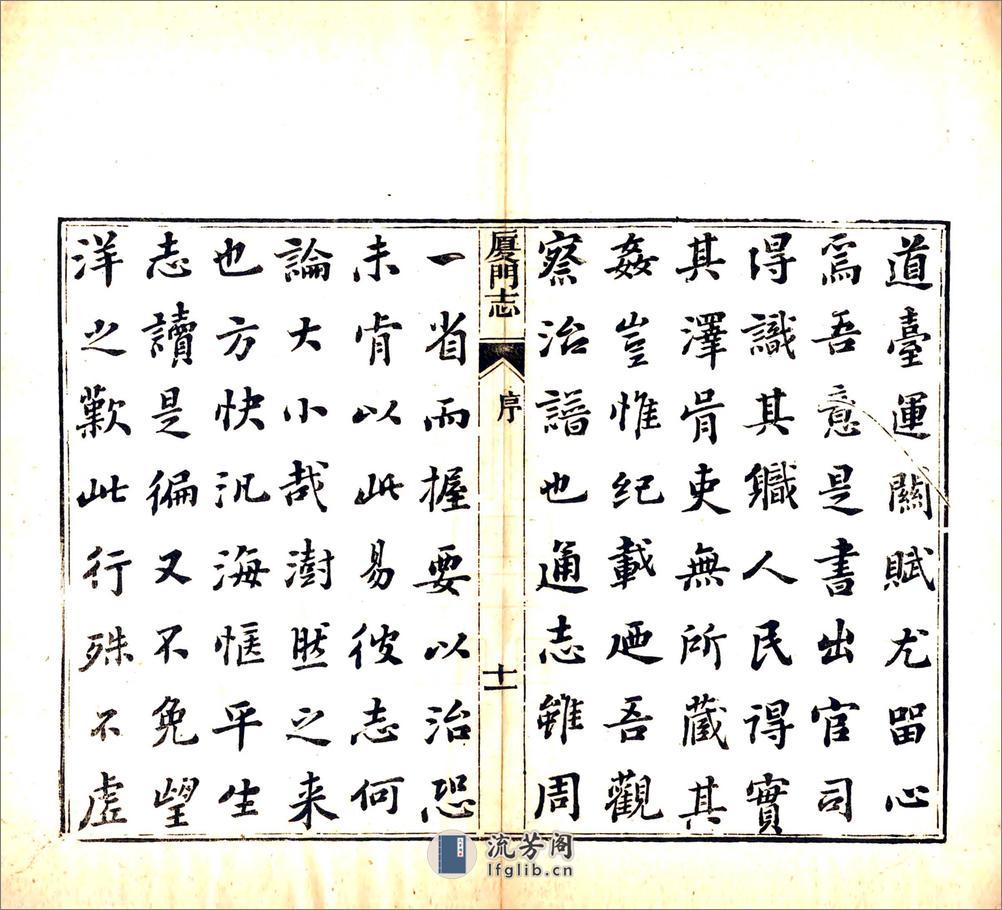 道臺運關賦尤留心
爲吾意是書出官司
得識其職人民得實
其澤胥吏無所藏其
姦豈惟紀載廼吾觀
察治譜也通志雖周
廈門志
序
十一
一省而握要以治恐
未肯以此易彼志何
論大小哉澍然之来
也方快汎海愜平生
志讀是徧又不免望
洋之歎此行殊不虛
流芳阁
lfglib.cn